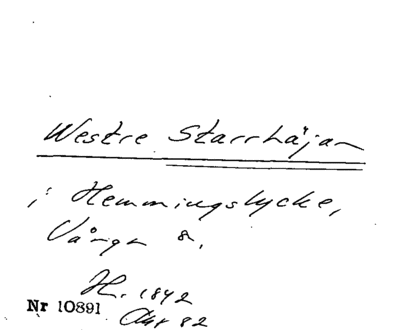 Westre Starrhäjan
i Hemmingslycke,
Vånga s.
H. 1842
Nr 10891
Akt 82